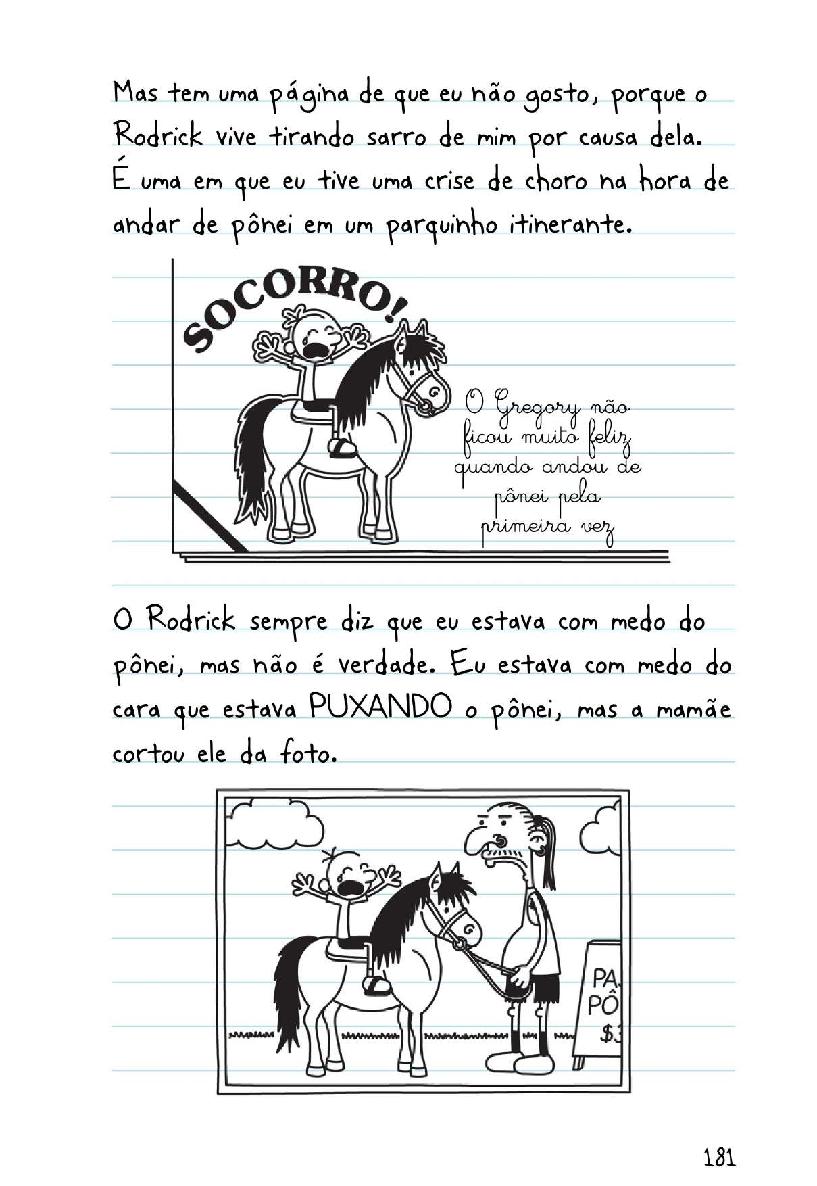 Mas tem uma página de que eu não gosto, porque o
Rodrick vive tirando sarro de mim por causa dela.
É uma em que eu tive uma crise de choro na hora de
andar de pônei em um parquinho itinerante.
SOCORRO!
O Gregory não
ficou muito feliz
quando andou de
pônei pela
primeira vez
O Rodrick sempre diz que eu estava com medo do
pônei, mas não é verdade. Eu estava com medo do
cara que estava PUXANDO o pônei, mas a mamãe
cortou ele da foto.
PA
PÔ
$3
181